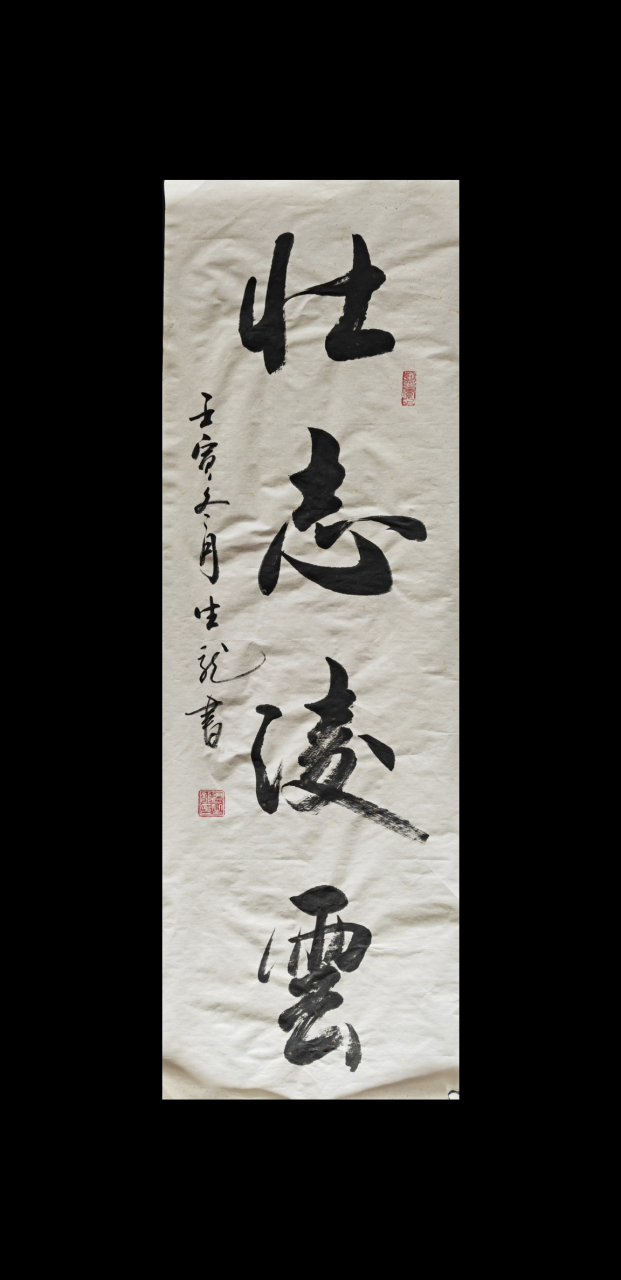 壮志凌雲
壬寅冬月生龍書